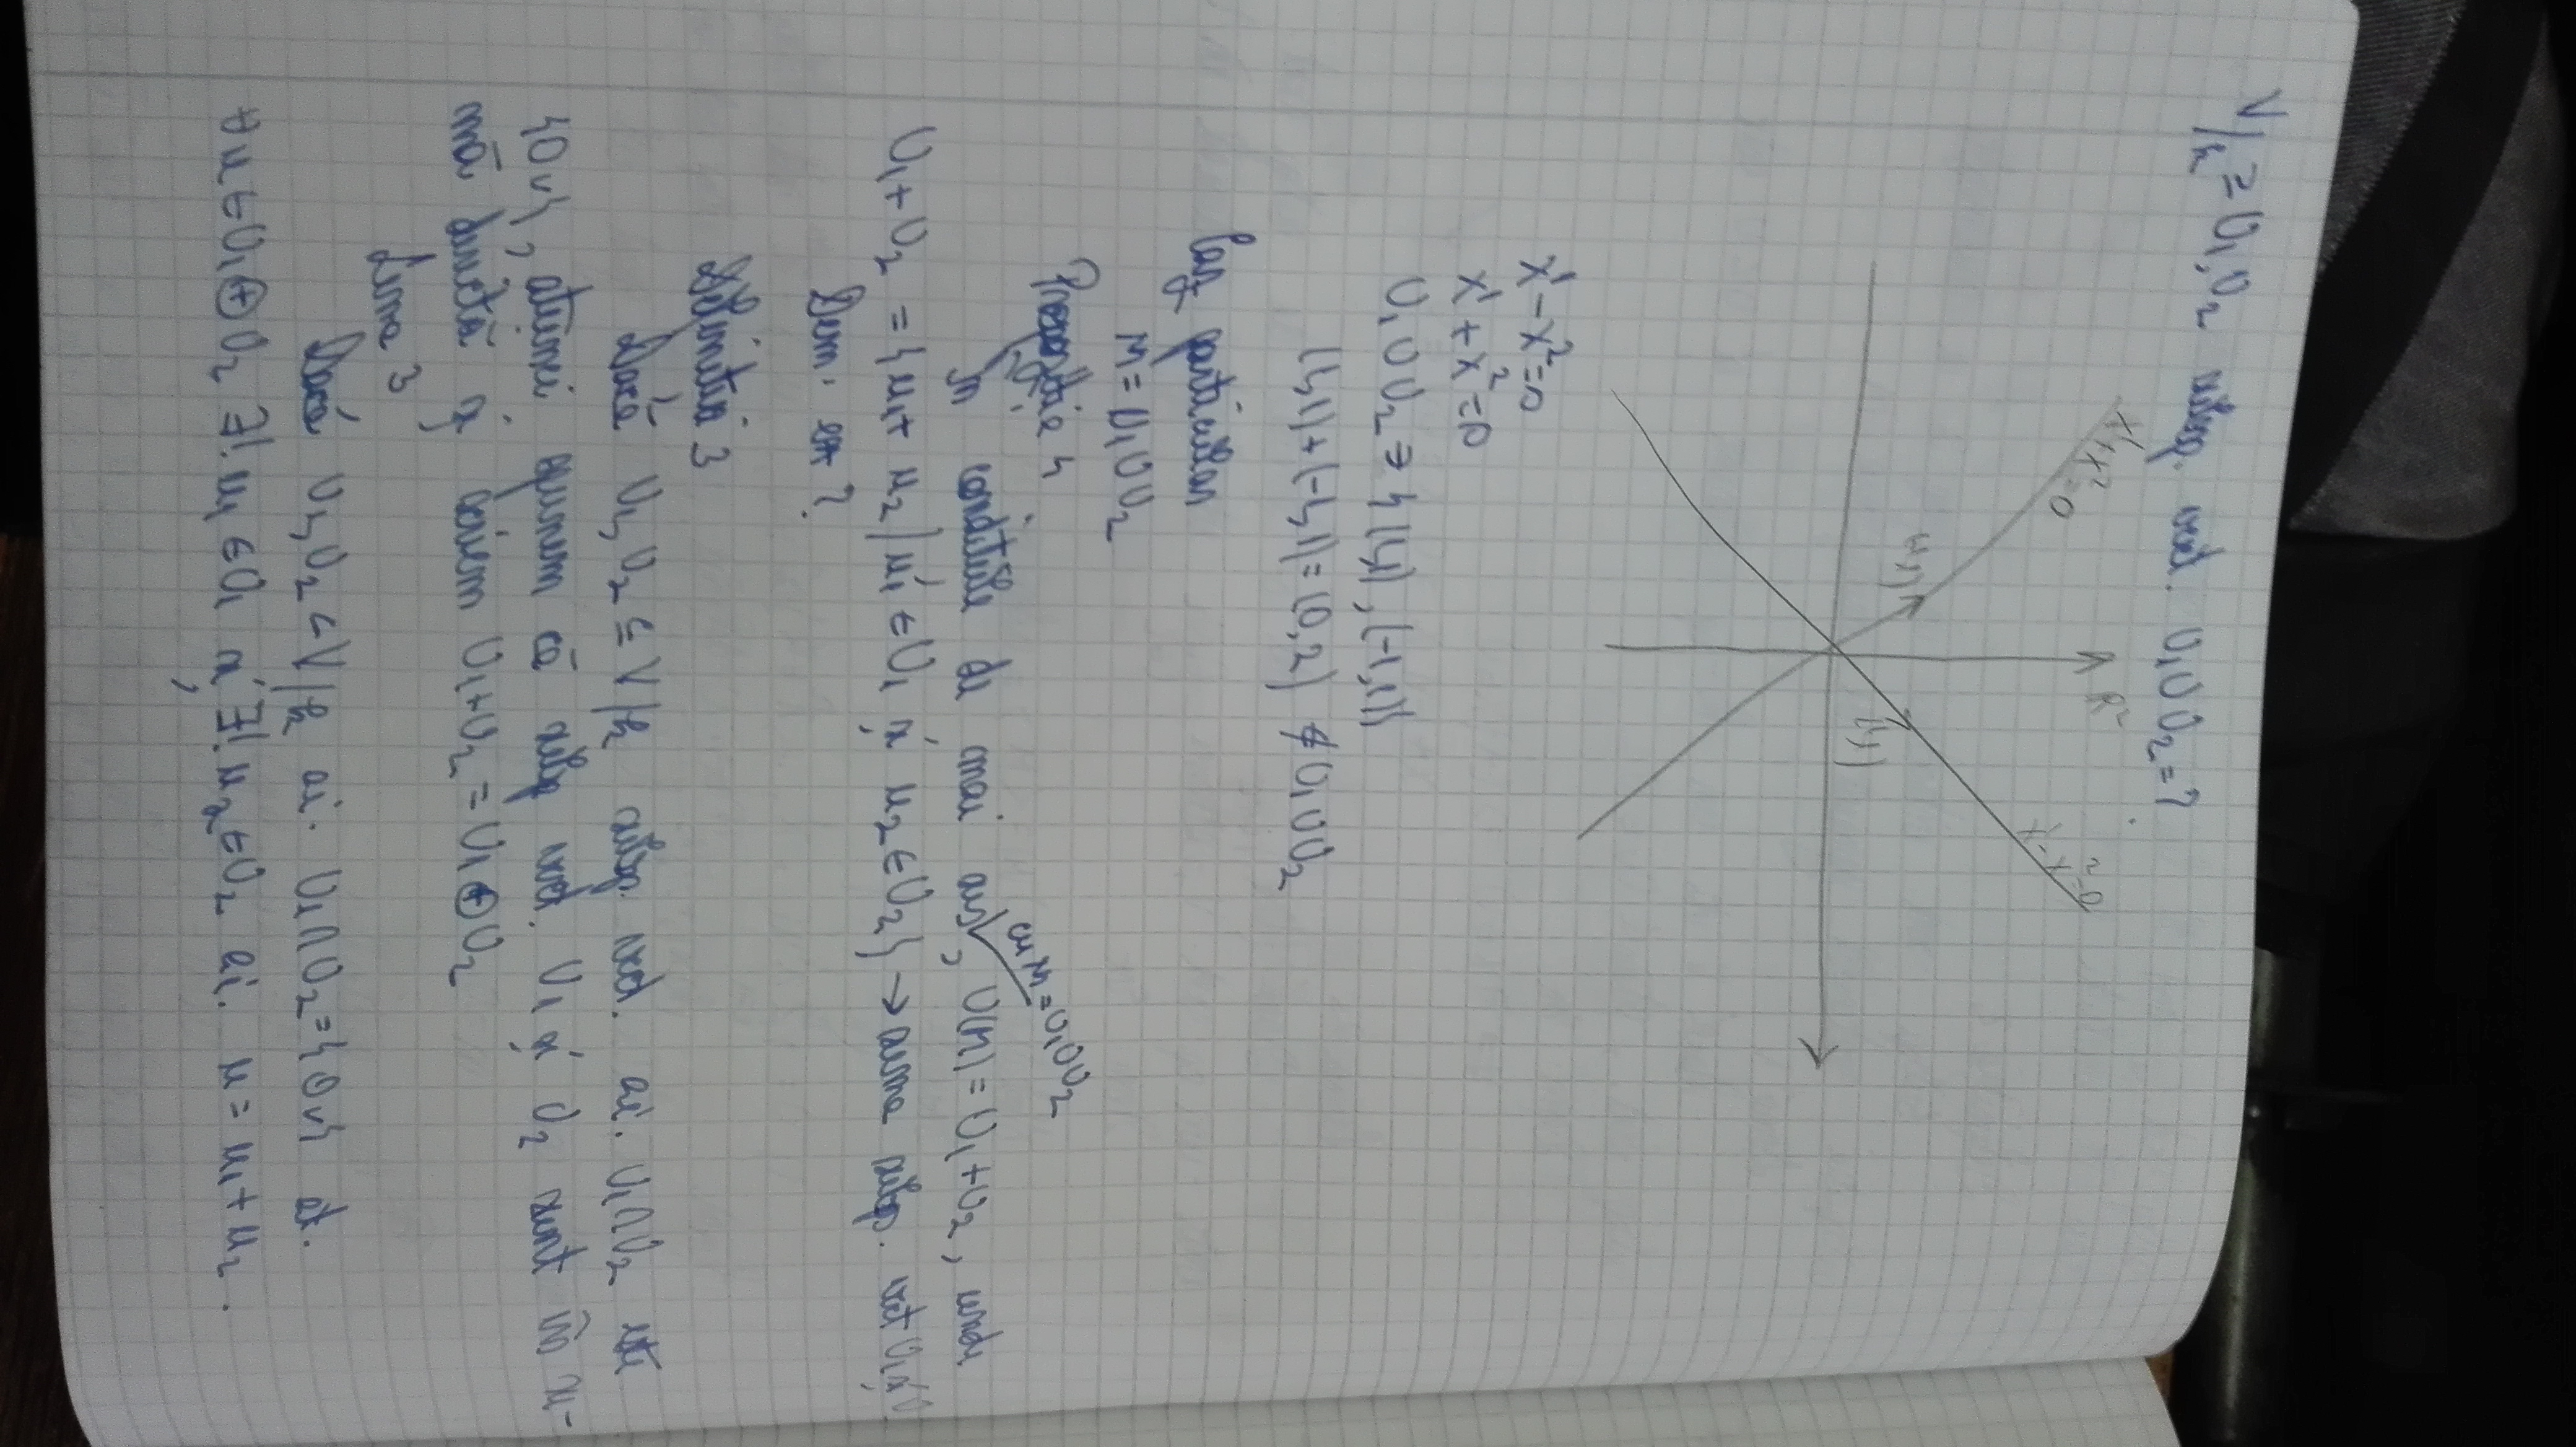 V|k ⊇ U₁, U₂ sbsp. vect. U₁∪U₂=?
R²
x¹+x²=0
x¹-x²=0
(-1,1)
(1,1)
x¹-x²=0
x¹+x²=0
U₁∪U₂ ∋ {(1,1), (-1,1)}
(1,1)+(-1,1)=(0,2) ∉ U₁∪U₂
Caz particular
M=U₁∪U₂
Propoziție 4
cu M=U₁∪U₂
În condițiile de mai sus, U(M)=U₁+U₂, unde
U₁+U₂={u₁+u₂|u₁∈U₁ și u₂∈U₂} → suma sbsp. vect U₁ și U₂
Dem: ex?
Definiția 3
Dacă U₁, U₂ ⊆ V|k sbsp. vect. aî. U₁∩U₂ este
{0v}, atunci spunem că sbsp vect. U₁ și U₂ sunt în su-
mă directă și scriem U₁+U₂=U₁⊕U₂
Lema 3
Dacă U₁, U₂ ⊂ V|k aî. U₁∩U₂={0v} at.
∀u∈U₁⊕U₂ ∃! u₁∈U₁ și ∃! u₂∈U₂ aî. u=u₁+u₂.